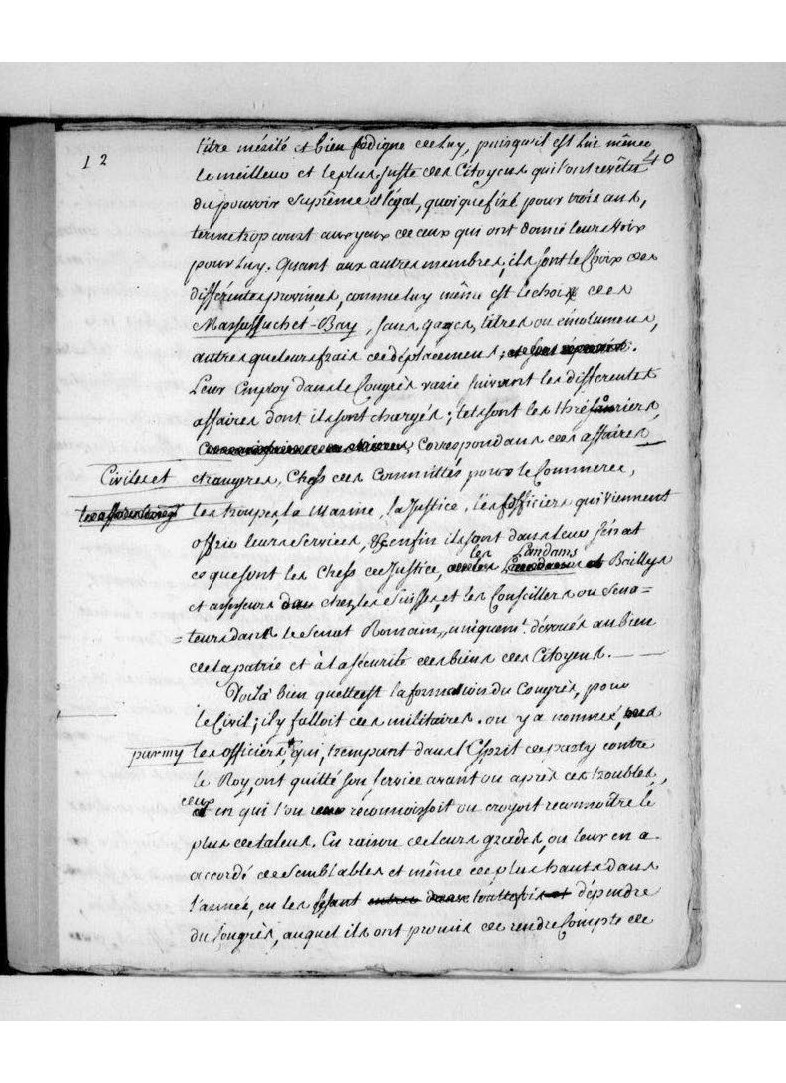 12
40
l'être mérité et bien digne de luy, puisqu'il est lui même
le meilleur et le plus juste des Citoyens qui l'ont revêtu
du pouvoir Suprême et légal, quoique fixé pour trois ans,
terme trop court aux yeux de ceux qui ont donné leurs voix
pour luy. Quant aux autres membres, ils sont le Choix des
différentes provinces, comme luy même est le choix des
Massassuchet-Bay, sans gages, titres ou émolumens,
autres que leurs frais de déplacement;
Leur Employ dans le Congrès varie suivant les différentes
affaires dont ils sont chargés; tels sont les thrésauriers,
Correspondans des affaires
Civiles et
étrangeres, Chefs des Committés pour le Commerce,
les troupes, la Marine, la Justice, les officiers qui viennent
offrir leurs services, & enfin ils sont dans leur sénat
ce que sont les Chefs de Justice, les Landams et Baillys
et assesseurs chez les Suisses, et les Conseillers ou Sena=
=teurs dans le Senat Romain, uniquemt. dévoués au bien
de la patrie et à la sécurité des biens des Citoyens.
Voilà bien quelle est la formation du Congrès, pour
le Civil; il y falloit des militaires. on y a nommé,
parmy les officiers, qui, trempant dans l'Esprit de party contre
le Roy, ont quitté son service avant ou après ces troubles,
ceux en qui l'on reconnoissoit ou croyoit reconnoître le
plus de talens. En raison de leurs grades, on leur en a
accordé de semblables et même de plus hauts dans
l'armée, en les fesant dépendre
du Congrès, auquel ils ont promis de rendre Compte de